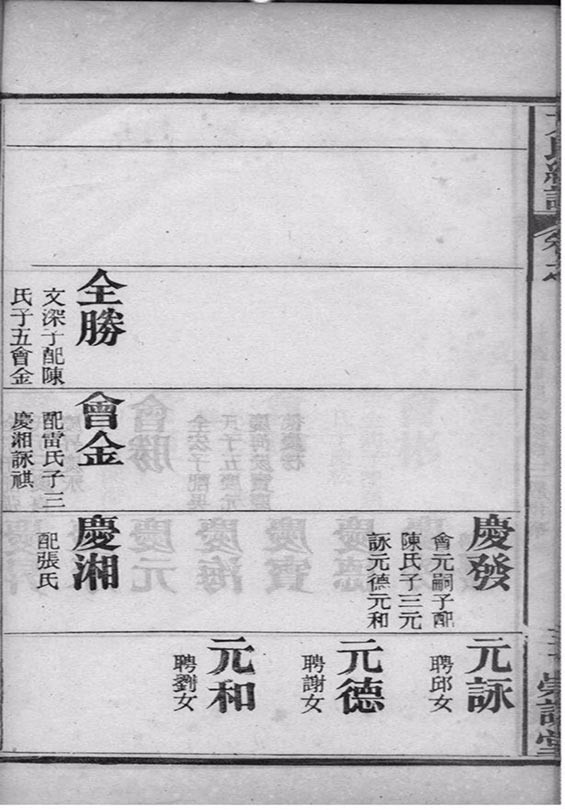 卷之
全勝
文深子配陳
氏子五會金
會金
配雷氏子三
慶湘詠祺
慶發
會元嗣子配
陳氏子三元
詠元德元和
慶湘
配張氏
元詠
聘邱女
元德
聘謝女
元和
聘劉女